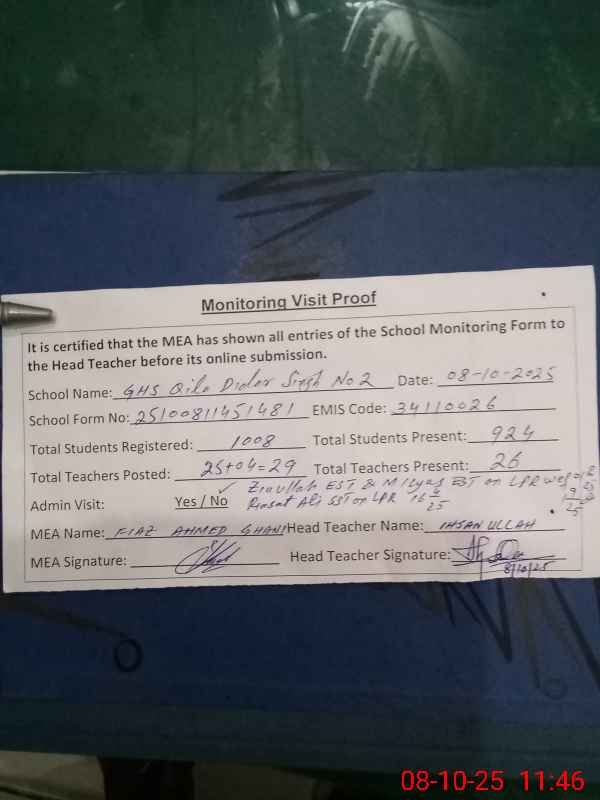 Monitoring Visit Proof
It is certified that the MEA has shown all entries of the School Monitoring Form to
the Head Teacher before its online submission.
School Name: GHS Qila Didar Singh No 2 Date: 08-10-2025
School Form No: 25100811451481 EMIS Code: 34110026
Total Students Registered: 1008 Total Students Present: 924
Total Teachers Posted: 25+04=29 Total Teachers Present: 26
Ziaullah EST & M Ilyas EST on LPR
Admin Visit: Yes / No ✓ Riasat Ali SST on LPR
MEA Name: FIAZ AHMED GHANI Head Teacher Name: IHSAN ULLAH
MEA Signature: Head Teacher Signature:
8/10/25
08-10-25 11:46